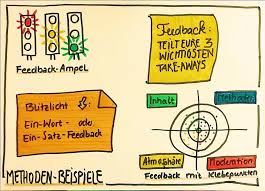 Feedback-Ampel
Feedback:
TEILT EURE 3
WICHTIGSTEN
TAKE-AWAYS
Blitzlicht
Ein-Wort- oder
Ein-Satz-Feedback
Inhalt
Methoden
Atmosphäre
Moderation
Feedback mit Klebepunkten
METHODEN-BEISPIELE